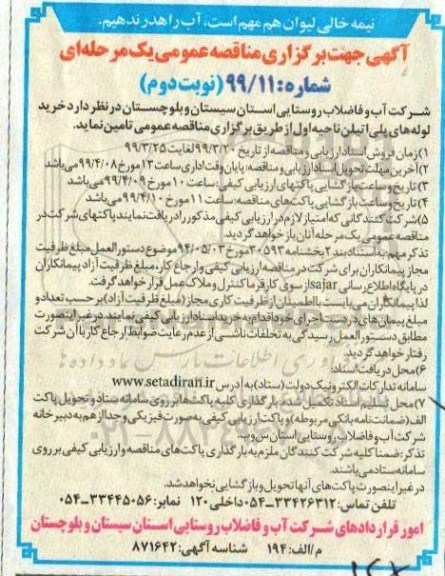 نیمه خالی لیوان هم مهم است، آب را هدر ندهیم.
آگهی جهت برگزاری مناقصه عمومی یک مرحله‌ای
شماره: ۹۹/۱۱ (نوبت دوم)
شرکت آب و فاضلاب روستایی استان سیستان و بلوچستان در نظر دارد خرید
لوله‌های پلی اتیلن ناحیه اول از طریق برگزاری مناقصه عمومی تامین نماید.
۱) زمان فروش اسناد ارزیابی و مناقصه از تاریخ ۹۹/۳/۲۰ لغایت ۹۹/۳/۲۵
۲) آخرین مهلت تحویل اسناد ارزیابی و مناقصه: پایان وقت اداری ساعت ۱۳ مورخ ۹۹/۴/۰۸ می‌باشد
۳) تاریخ و ساعت بازگشایی پاکتهای ارزیابی کیفی: ساعت ۱۰ مورخ ۹۹/۴/۰۹ می‌باشد
۴) تاریخ و ساعت بازگشایی پاکت‌های مناقصه: ساعت ۱۱ مورخ ۹۹/۴/۱۰ می‌باشد
۵) شرکت کنندگانی که امتیاز لازم در ارزیابی کیفی مذکور را دریافت نمایند پاکتهای شرکت در
مناقصه عمومی یک مرحله آنان باز خواهد گردید.
تذکر مهم: به استناد بند ۲ بخشنامه ۳۰۵۹۳ مورخ ۹۴/۰۵/۰۳ موضوع دستورالعمل مبلغ ظرفیت
مجاز پیمانکاران برای شرکت در مناقصه ارزیابی کیفی و ارجاع کار، مبلغ ظرفیت آزاد پیمانکاران
در پایگاه اطلاع رسانی sajar از سوی کارفرما کنترل و ملاک عمل قرار خواهد گرفت.
لذا پیمانکاران می‌بایست با اطمینان از ظرفیت کاری مجاز (مبلغ ظرفیت آزاد) بر حسب تعداد و
مبلغ پیمان‌های در دست اجرای خود اقدام به خرید اسناد ارزیابی کیفی نمایند در غیر اینصورت
مطابق دستورالعمل رسیدگی به تخلفات ناشی از عدم رعایت ضوابط ارجاع کار با آن شرکت
رفتار خواهد گردید.
۶) محل دریافت اسناد:
سامانه تدارکات الکترونیک دولت (ستاد) به آدرس www.setadiran.ir
۷) محل تسلیم اسناد تکمیل شده: بارگذاری کلیه پاکت‌ها بر روی سامانه ستاد و تحویل پاکت
الف (ضمانت نامه بانکی مربوطه) و پاکت ارزیابی کیفی به صورت فیزیکی و جدا از هم به دبیرخانه
شرکت آب و فاضلاب روستایی استان س وب.
تذکر: ضمنا کلیه شرکت کنندگان ملزم به بارگذاری پاکت‌های مناقصه و ارزیابی کیفی بر روی
سامانه ستاد می‌باشند.
در غیر اینصورت پاکت‌های آنها تحویل و بازگشایی نخواهد شد.
تلفن تماس: ۳۳۴۲۶۳۱۲-۰۵۴ داخلی ۱۲۰ نمابر: ۳۳۴۴۵۰۵۶-۰۵۴
امور قراردادهای شرکت آب و فاضلاب روستایی استان سیستان و بلوچستان
م/الف: ۱۹۴ شناسه آگهی: ۸۷۱۶۴۲